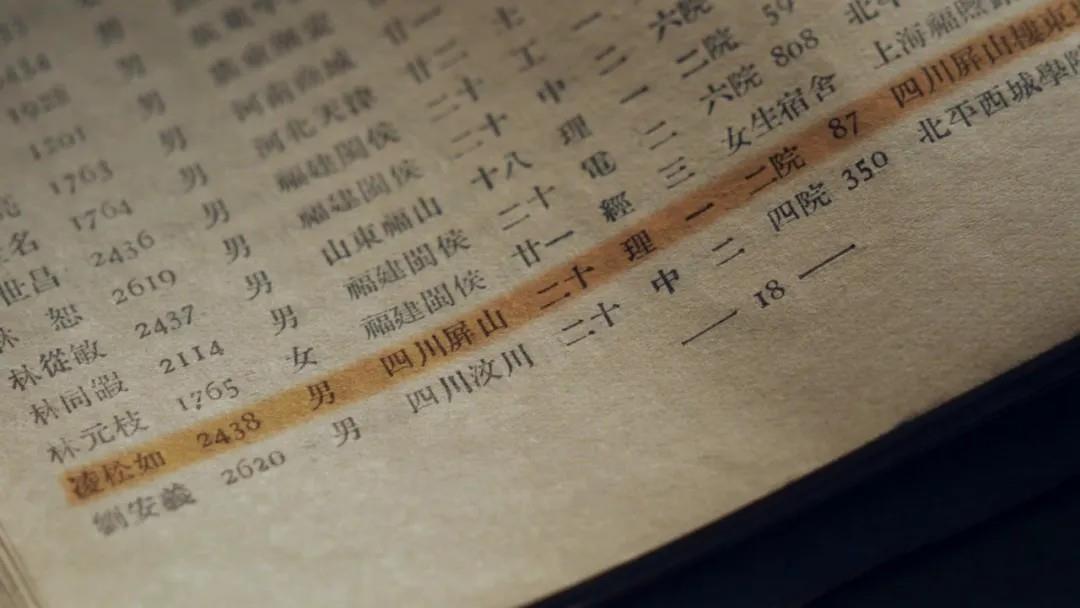 男
1928 男
1201 男
1763 男 河南商城 廿一
名 1764 男 河北天津 廿二 土
世昌 2436 男 福建閩侯 二十 工 一
林 恕 2619 男 福建閩侯 二十 中 二 六院
林從敏 2437 男 山東福山 十八 理 一 二院 59
林同嘏 2114 男 福建閩侯 二十 電 二 六院 808 北平
林元枝 1765 女 福建閩侯 廿一 經 三 女生宿舍 上海福煦路
凌松如 2438 男 四川屏山 二十 理 一 二院 87 四川屏山樓東
劉安義 2620 男 四川汶川 二十 中 二 四院 350 北平西城學院
— 18 —